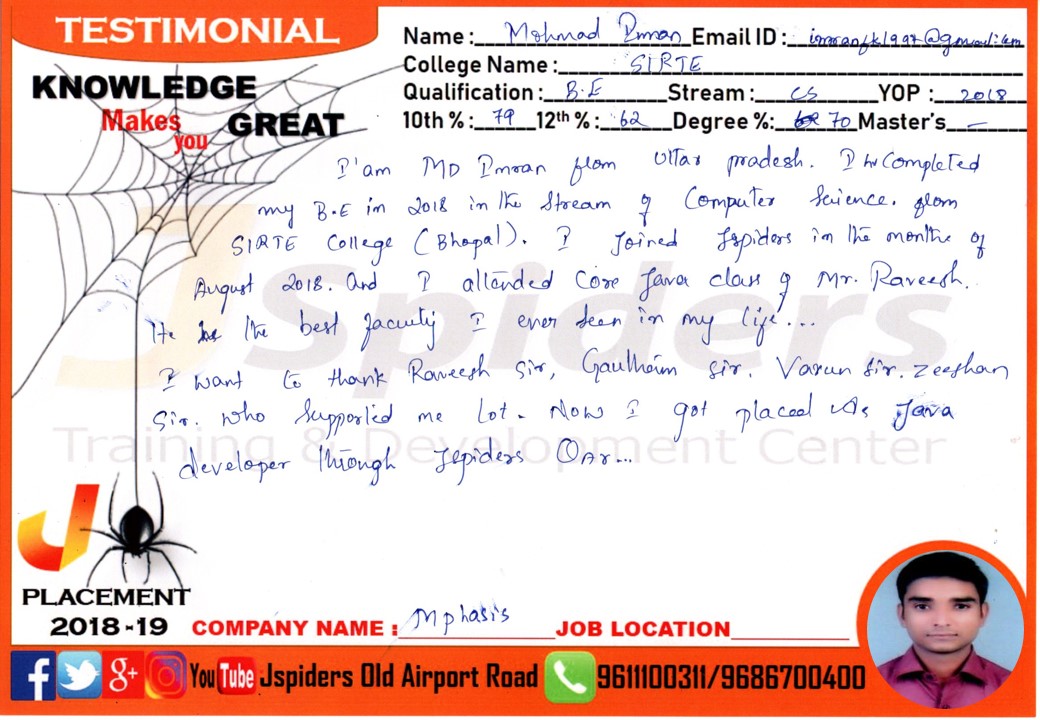 TESTIMONIAL
KNOWLEDGE
Makes
you GREAT
Name : Mohmad Imran Email ID :
College Name : SIRTE
Qualification : B.E Stream : CS YOP : 2018
10th % : 79 12th % : 62 Degree %: 70 Master's –
I'am MD Imran from Uttar pradesh. I hv Completed
my B.E in 2018 in the Stream of Computer Science. from
SIRTE College (Bhopal). I Joined Jspiders in the months of
August 2018. And I attended Core Java class of Mr. Raveesh.
He is the best faculty I ever seen in my life...
I want to thank Raveesh Sir, Gautham sir. Varun Sir. Zeeshan
Sir. who Supported me Lot. Now I got placed As Java
developer through Jspiders OAR...
JSpiders
Training & Development Center
J
PLACEMENT
2018-19
COMPANY NAME : Mphasis JOB LOCATION
f g+ You Tube Jspiders Old Airport Road 9611100311/9686700400